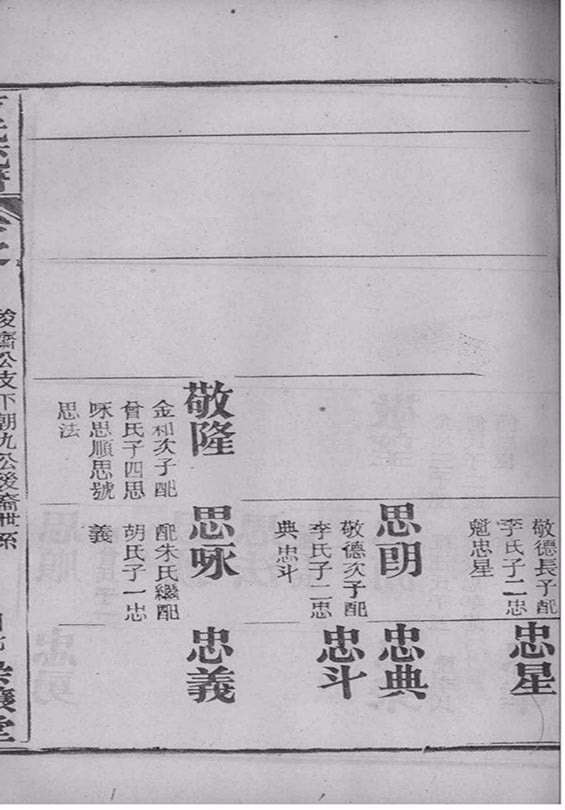 敬德長子配
李氏子二忠
魁忠星
忠星
思明
敬德次子配
李氏子二忠
典忠斗
忠典
忠斗
敬隆
金和次子配
曾氏子四思
咏思順思號
思法
思咏
配朱氏繼配
胡氏子一忠
義
忠義
公支下朝九公後裔世系
堂